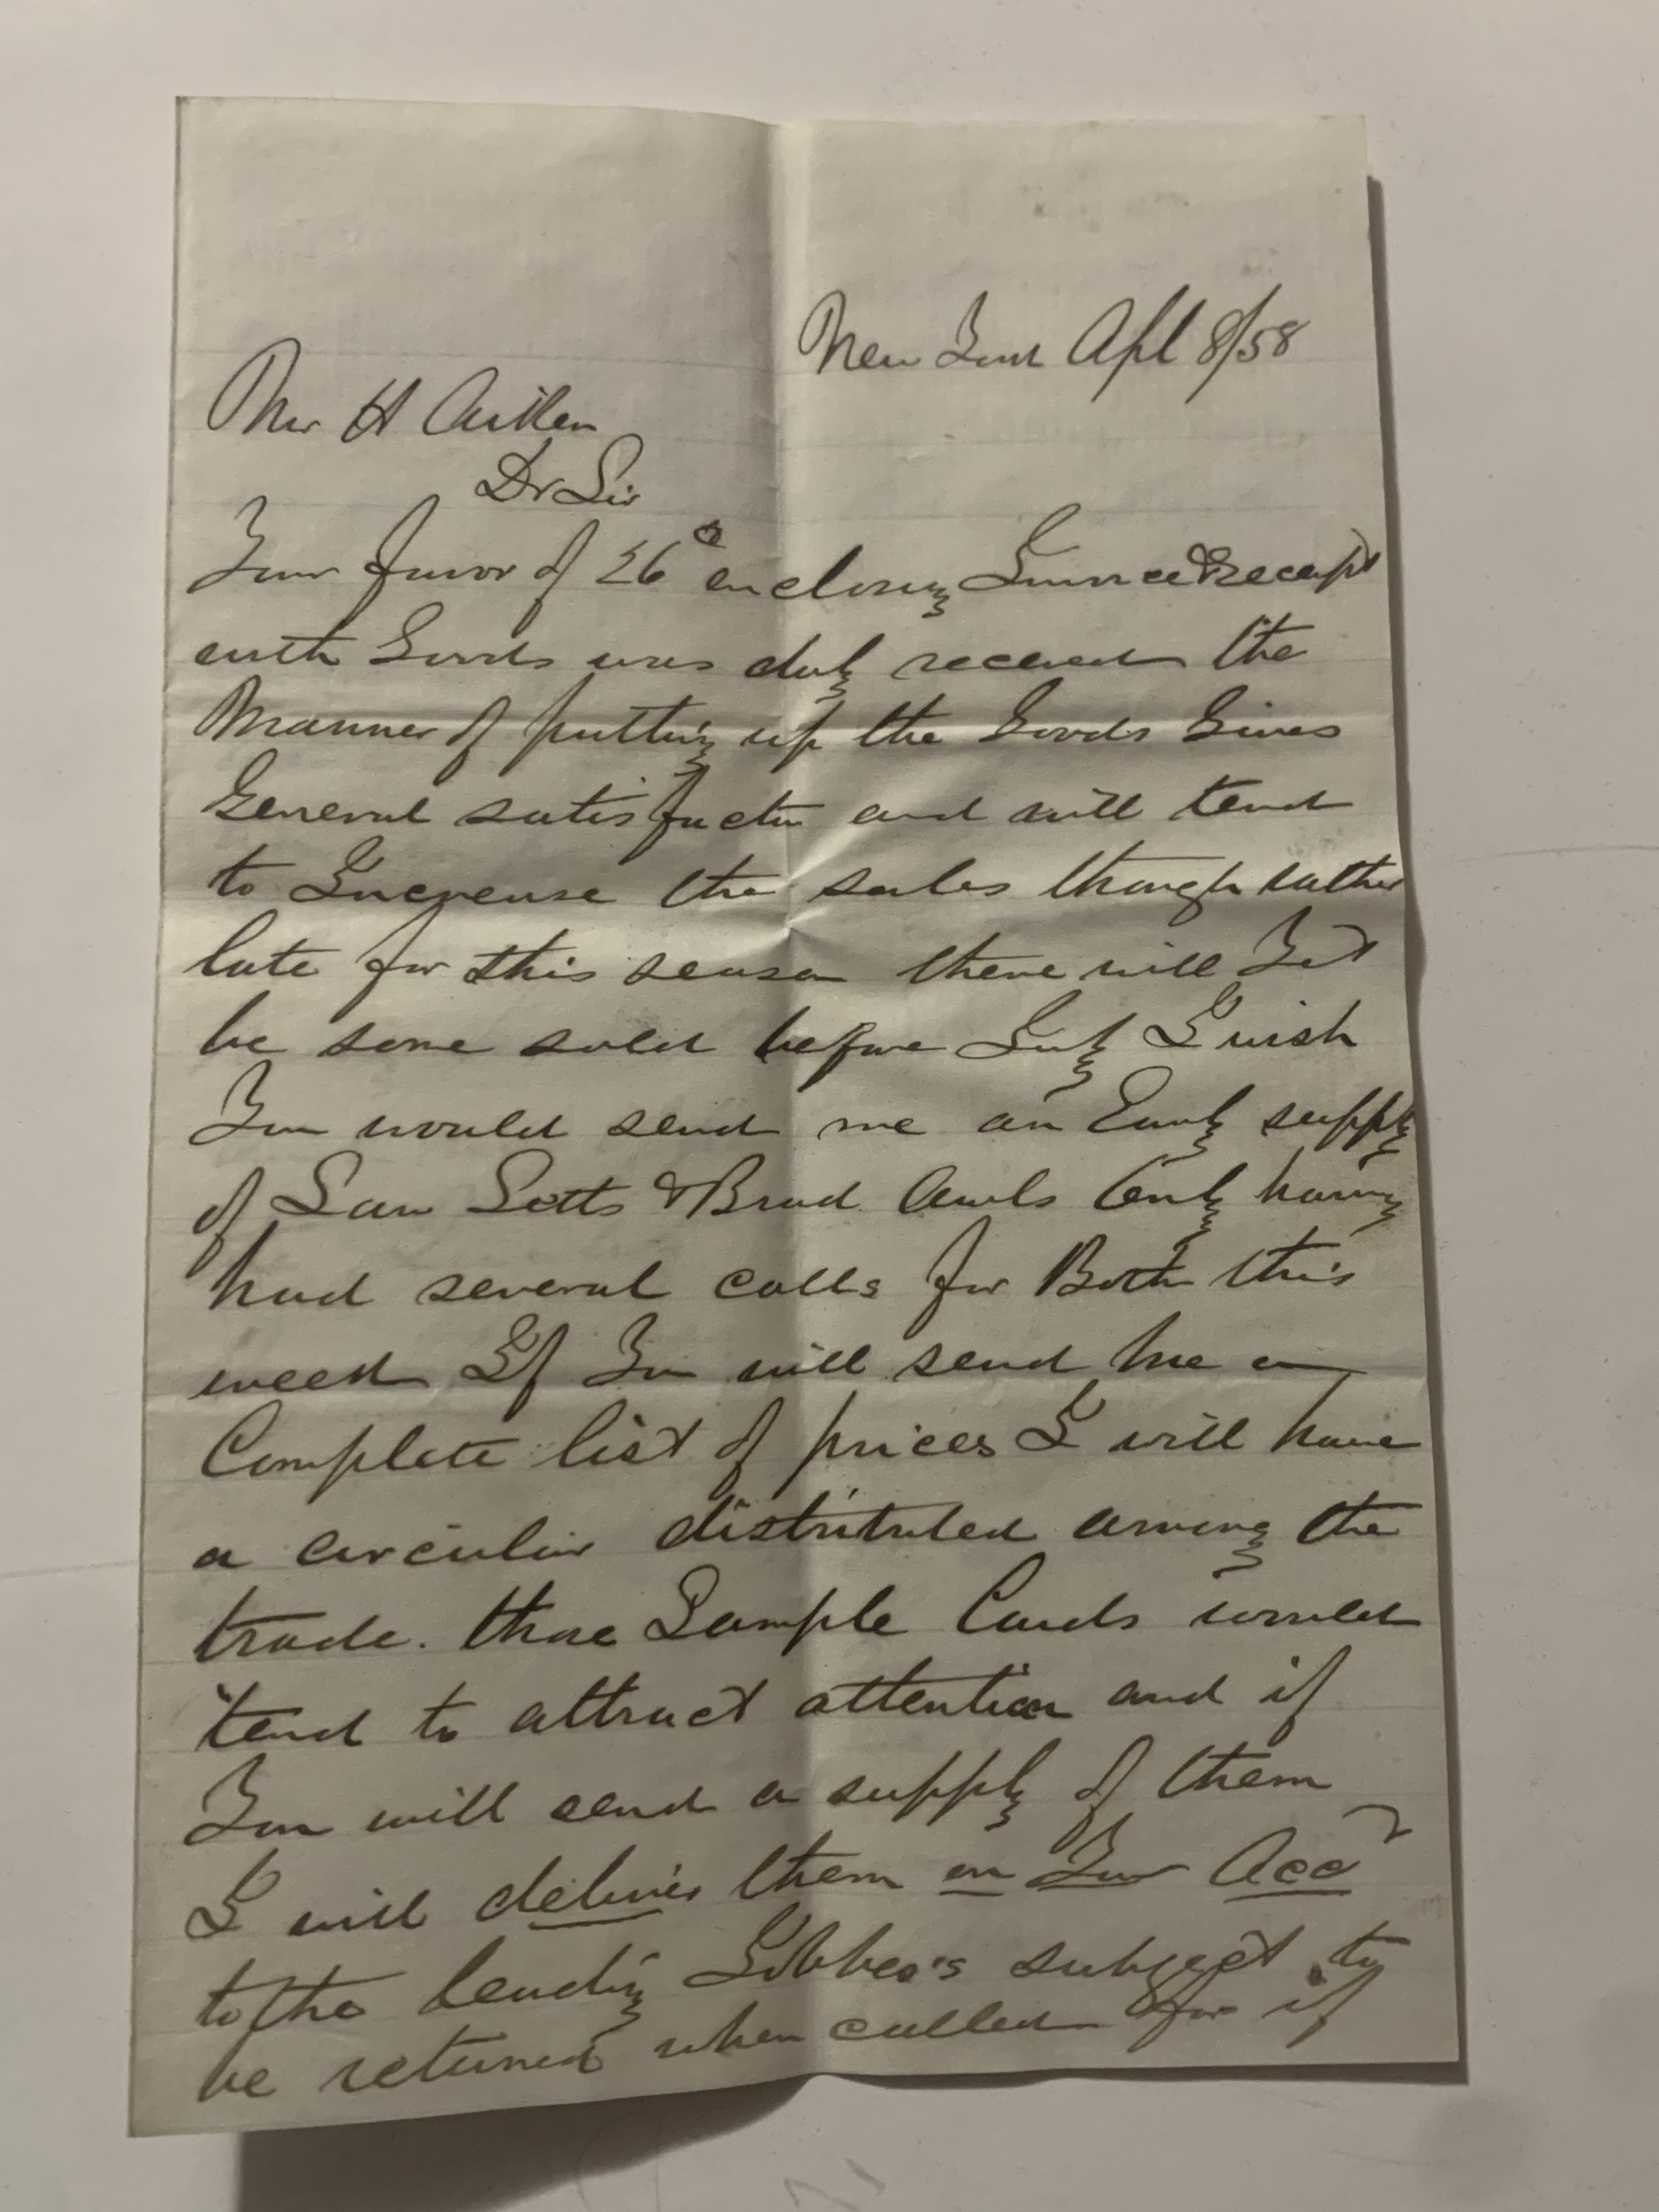 New York Apl 8/58
Mr H Aitken
Dr Sir
Your favor of 26th enclosing Invoice & Receipt
with Goods was duly received the
Manner of putting up the Goods Gives
General satisfactn and will tend
to Increase the sales though rather
late for this season there will Yet
be some sold before July I wish
You would send me an Early supply
of Saw Setts & Brad Awls Only having
had several calls for Both this
week If You will send me a
Complete list of prices I will have
a circular distributed among the
trade. those Sample Cards would
tend to attract attention and if
You will send a supply of them
I will deliver them on Your Acct
to the leading Jobber's subject to
be returned when called for if